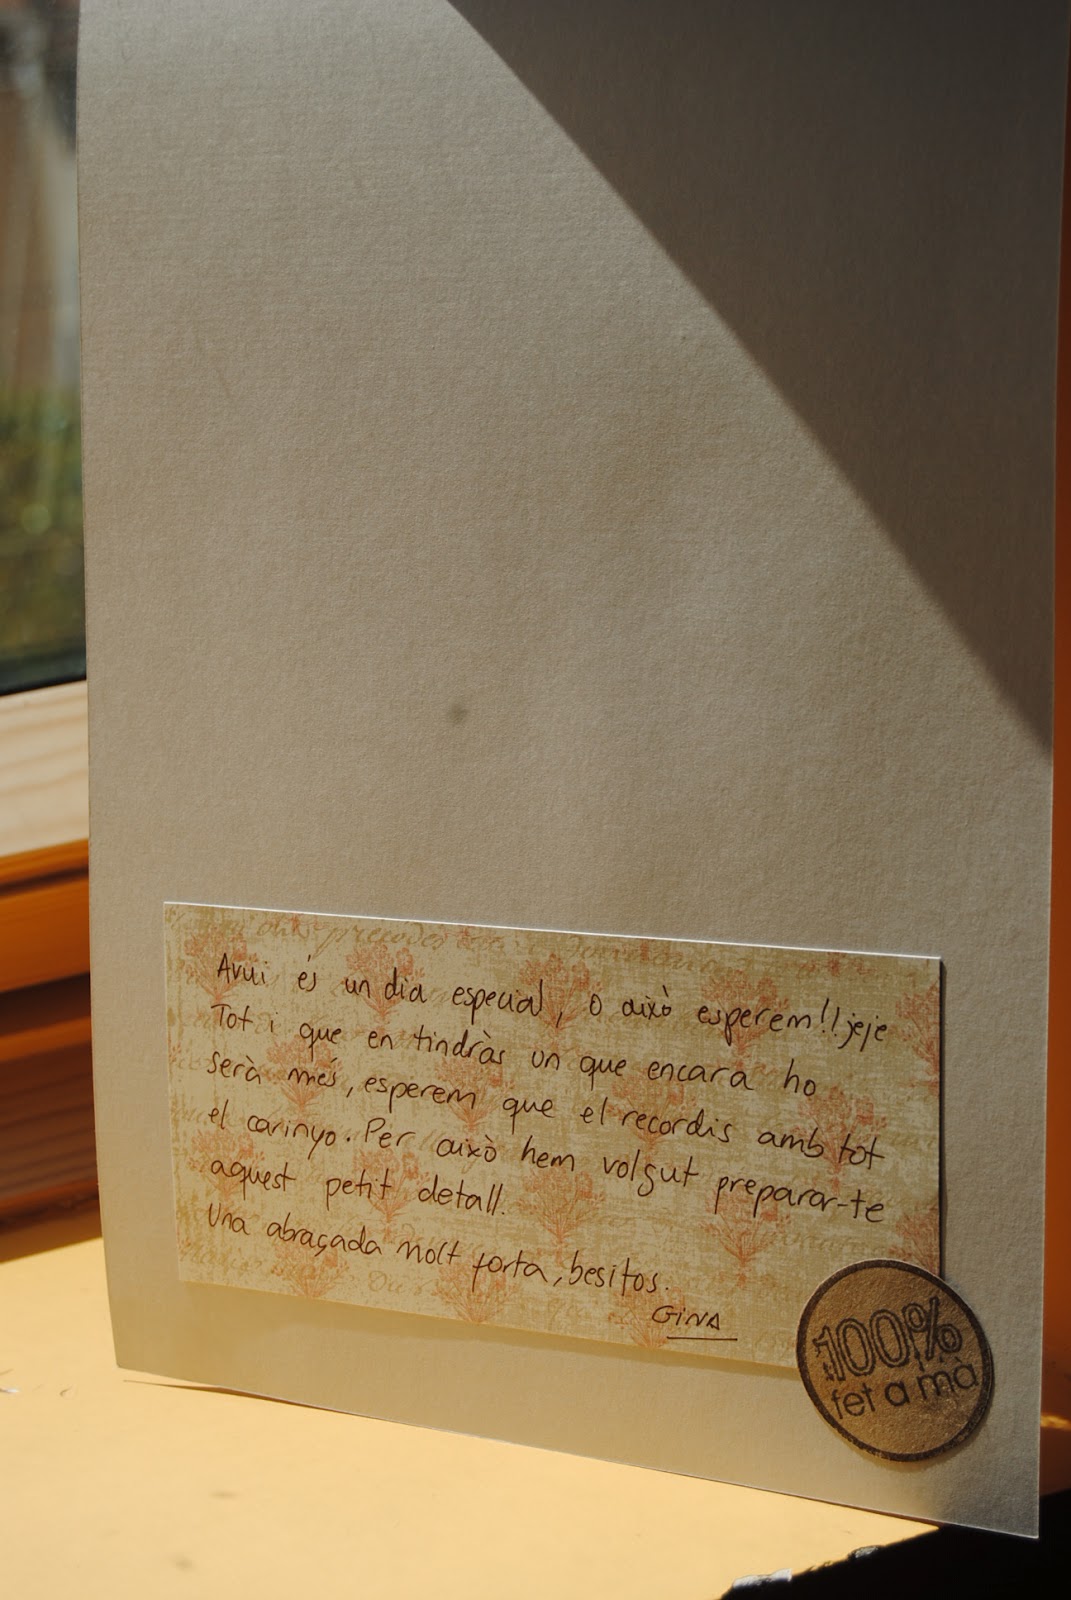 Avui és un dia especial, o això esperem!! jeje
Tot i que en tindràs un que encara ho
serà més, esperem que el recordis amb tot
el carinyo. Per això hem volgut preparar-te
aquest petit detall.
Una abraçada molt forta, besitos.
GINA
100%
fet a mà